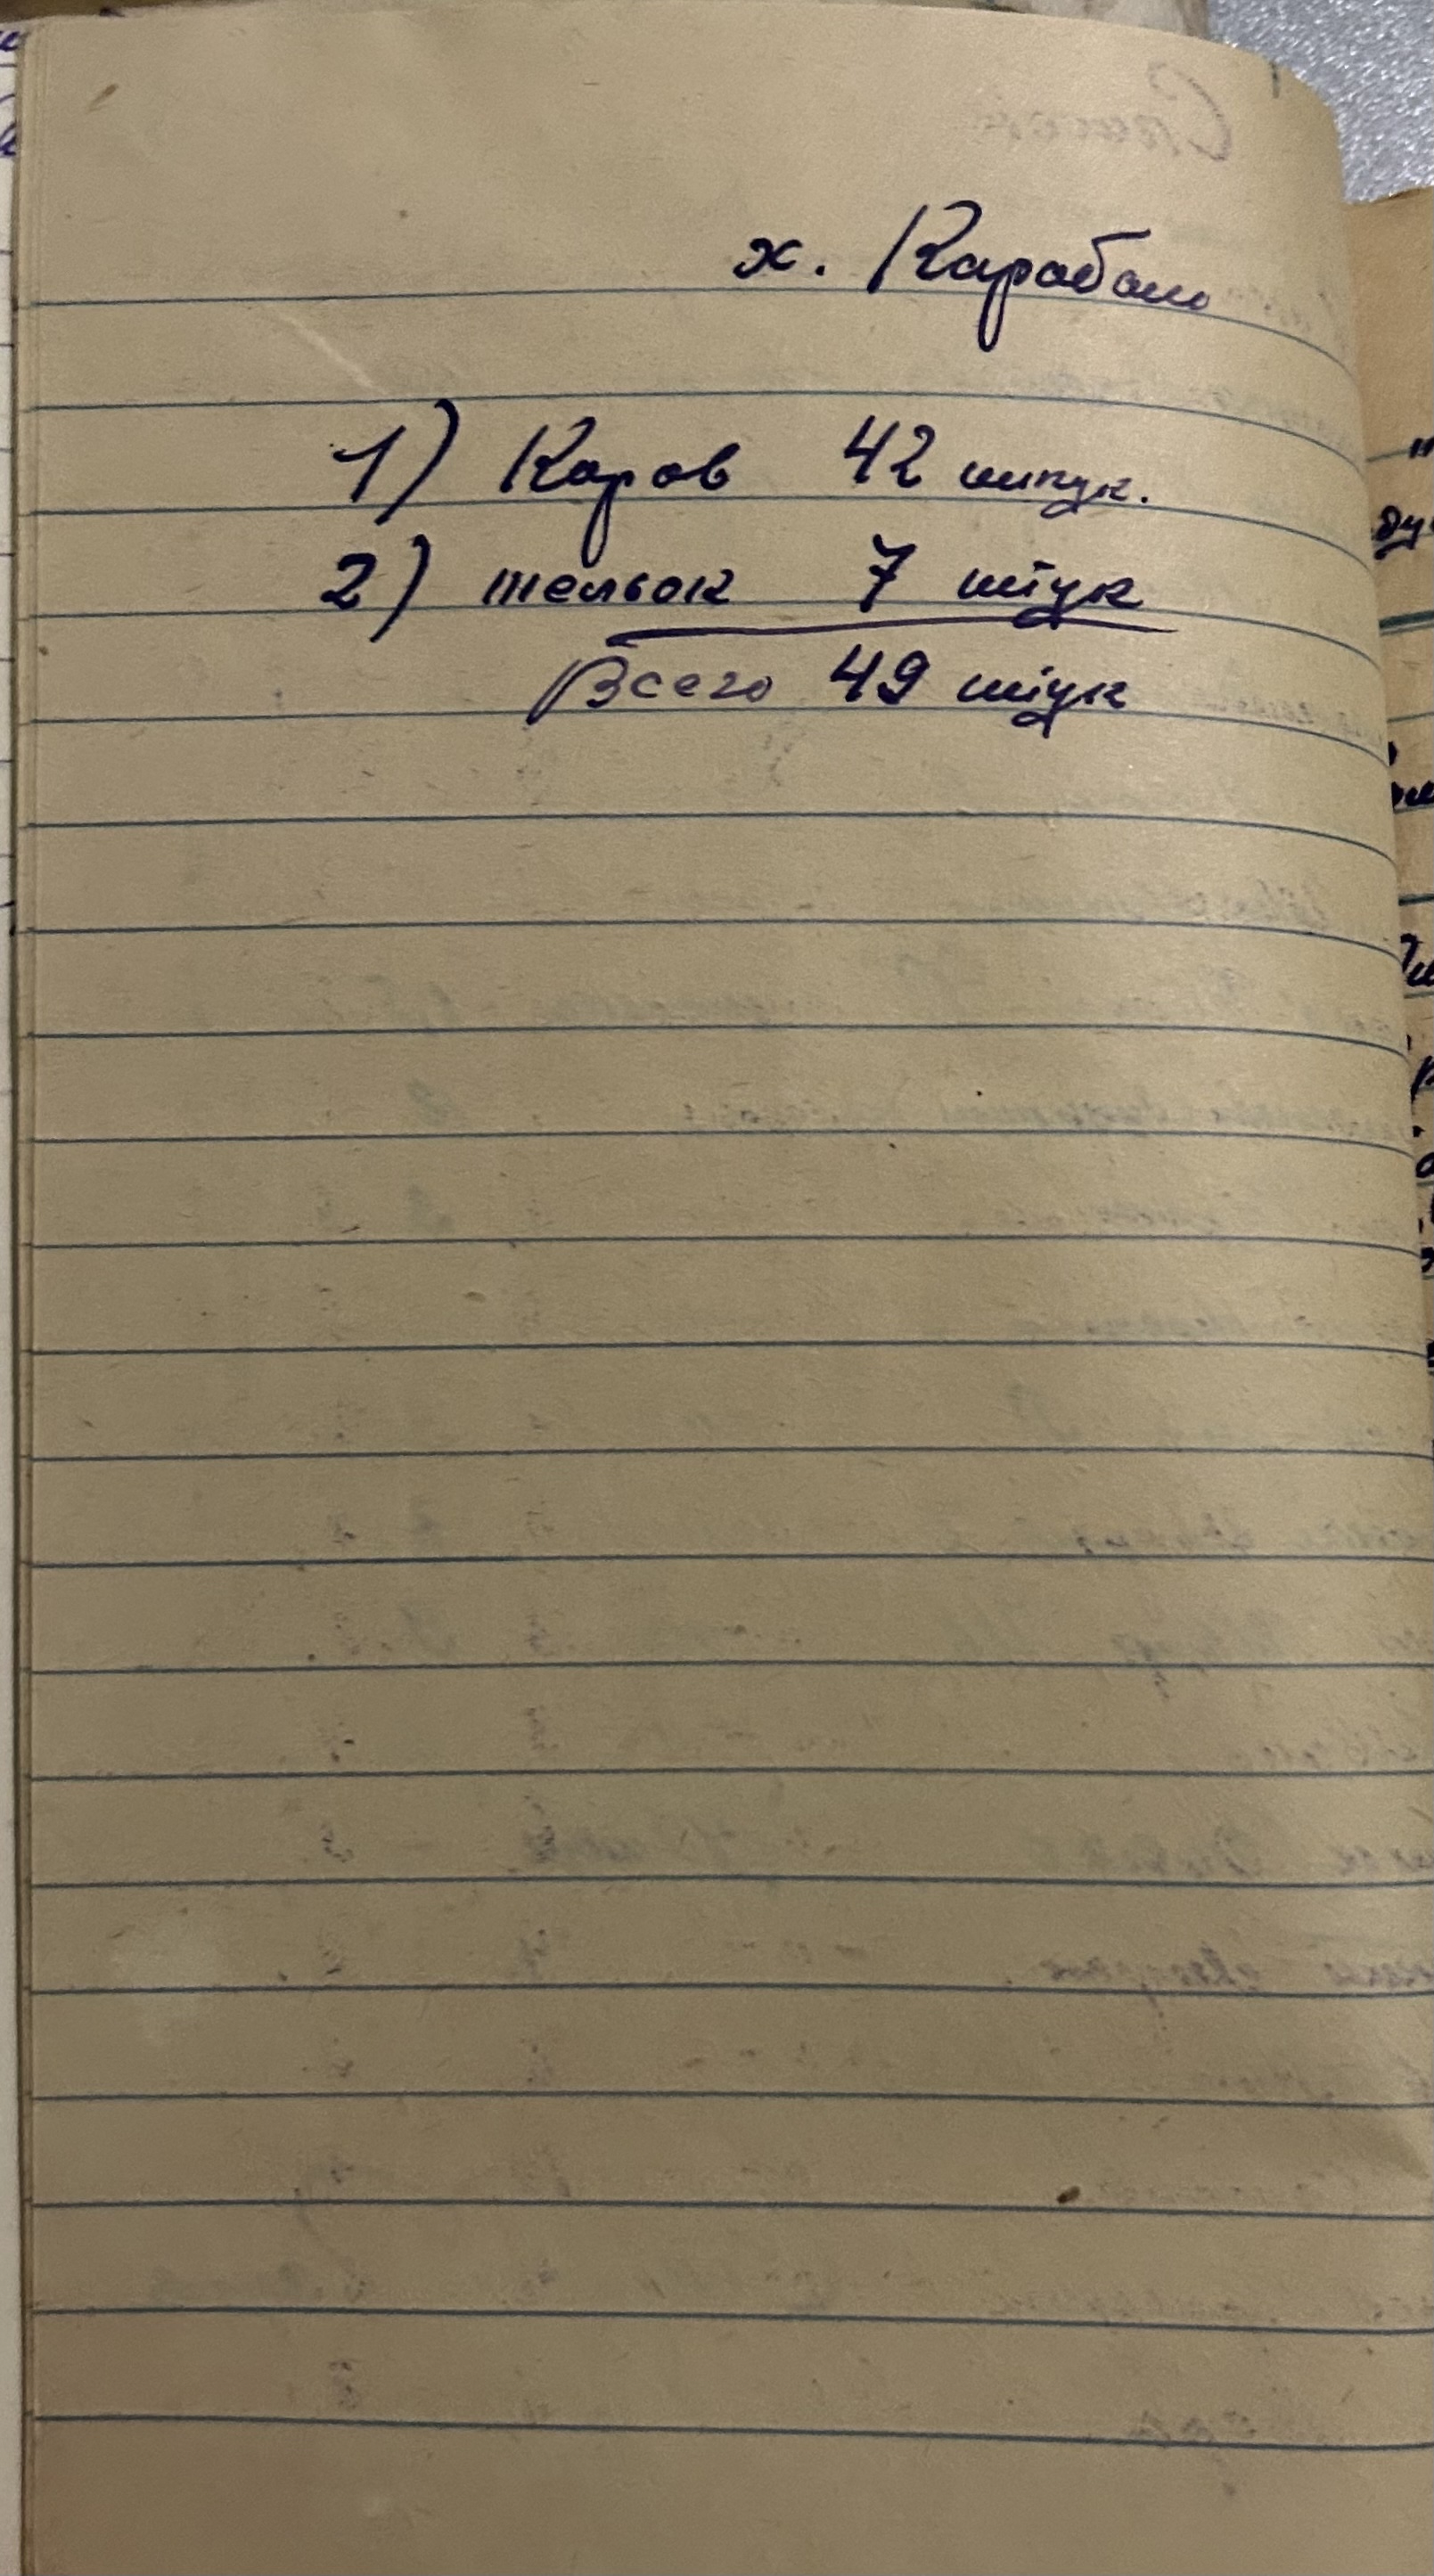 х. Карабаш
1) Каров 42 штук.
2) тельок 7 штук
Всего 49 штук